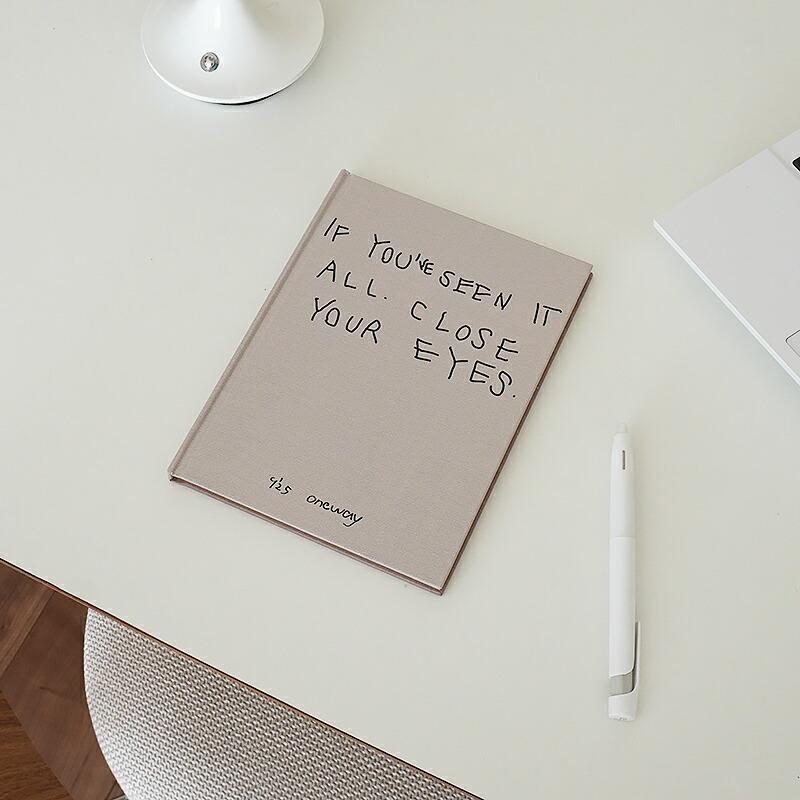 IF YOU'VE SEEN IT
ALL. CLOSE
YOUR EYES.
925 oneway